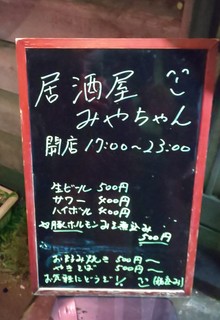 居酒屋
みやちゃん
開店 17:00〜23:00
生ビール 500円
サワー 400円
ハイボール 400円
豚ホルモンみそ煮込み
500円
お好み焼き 500円〜
やきそば 500円〜
お気軽にどうぞ!! (税込み)